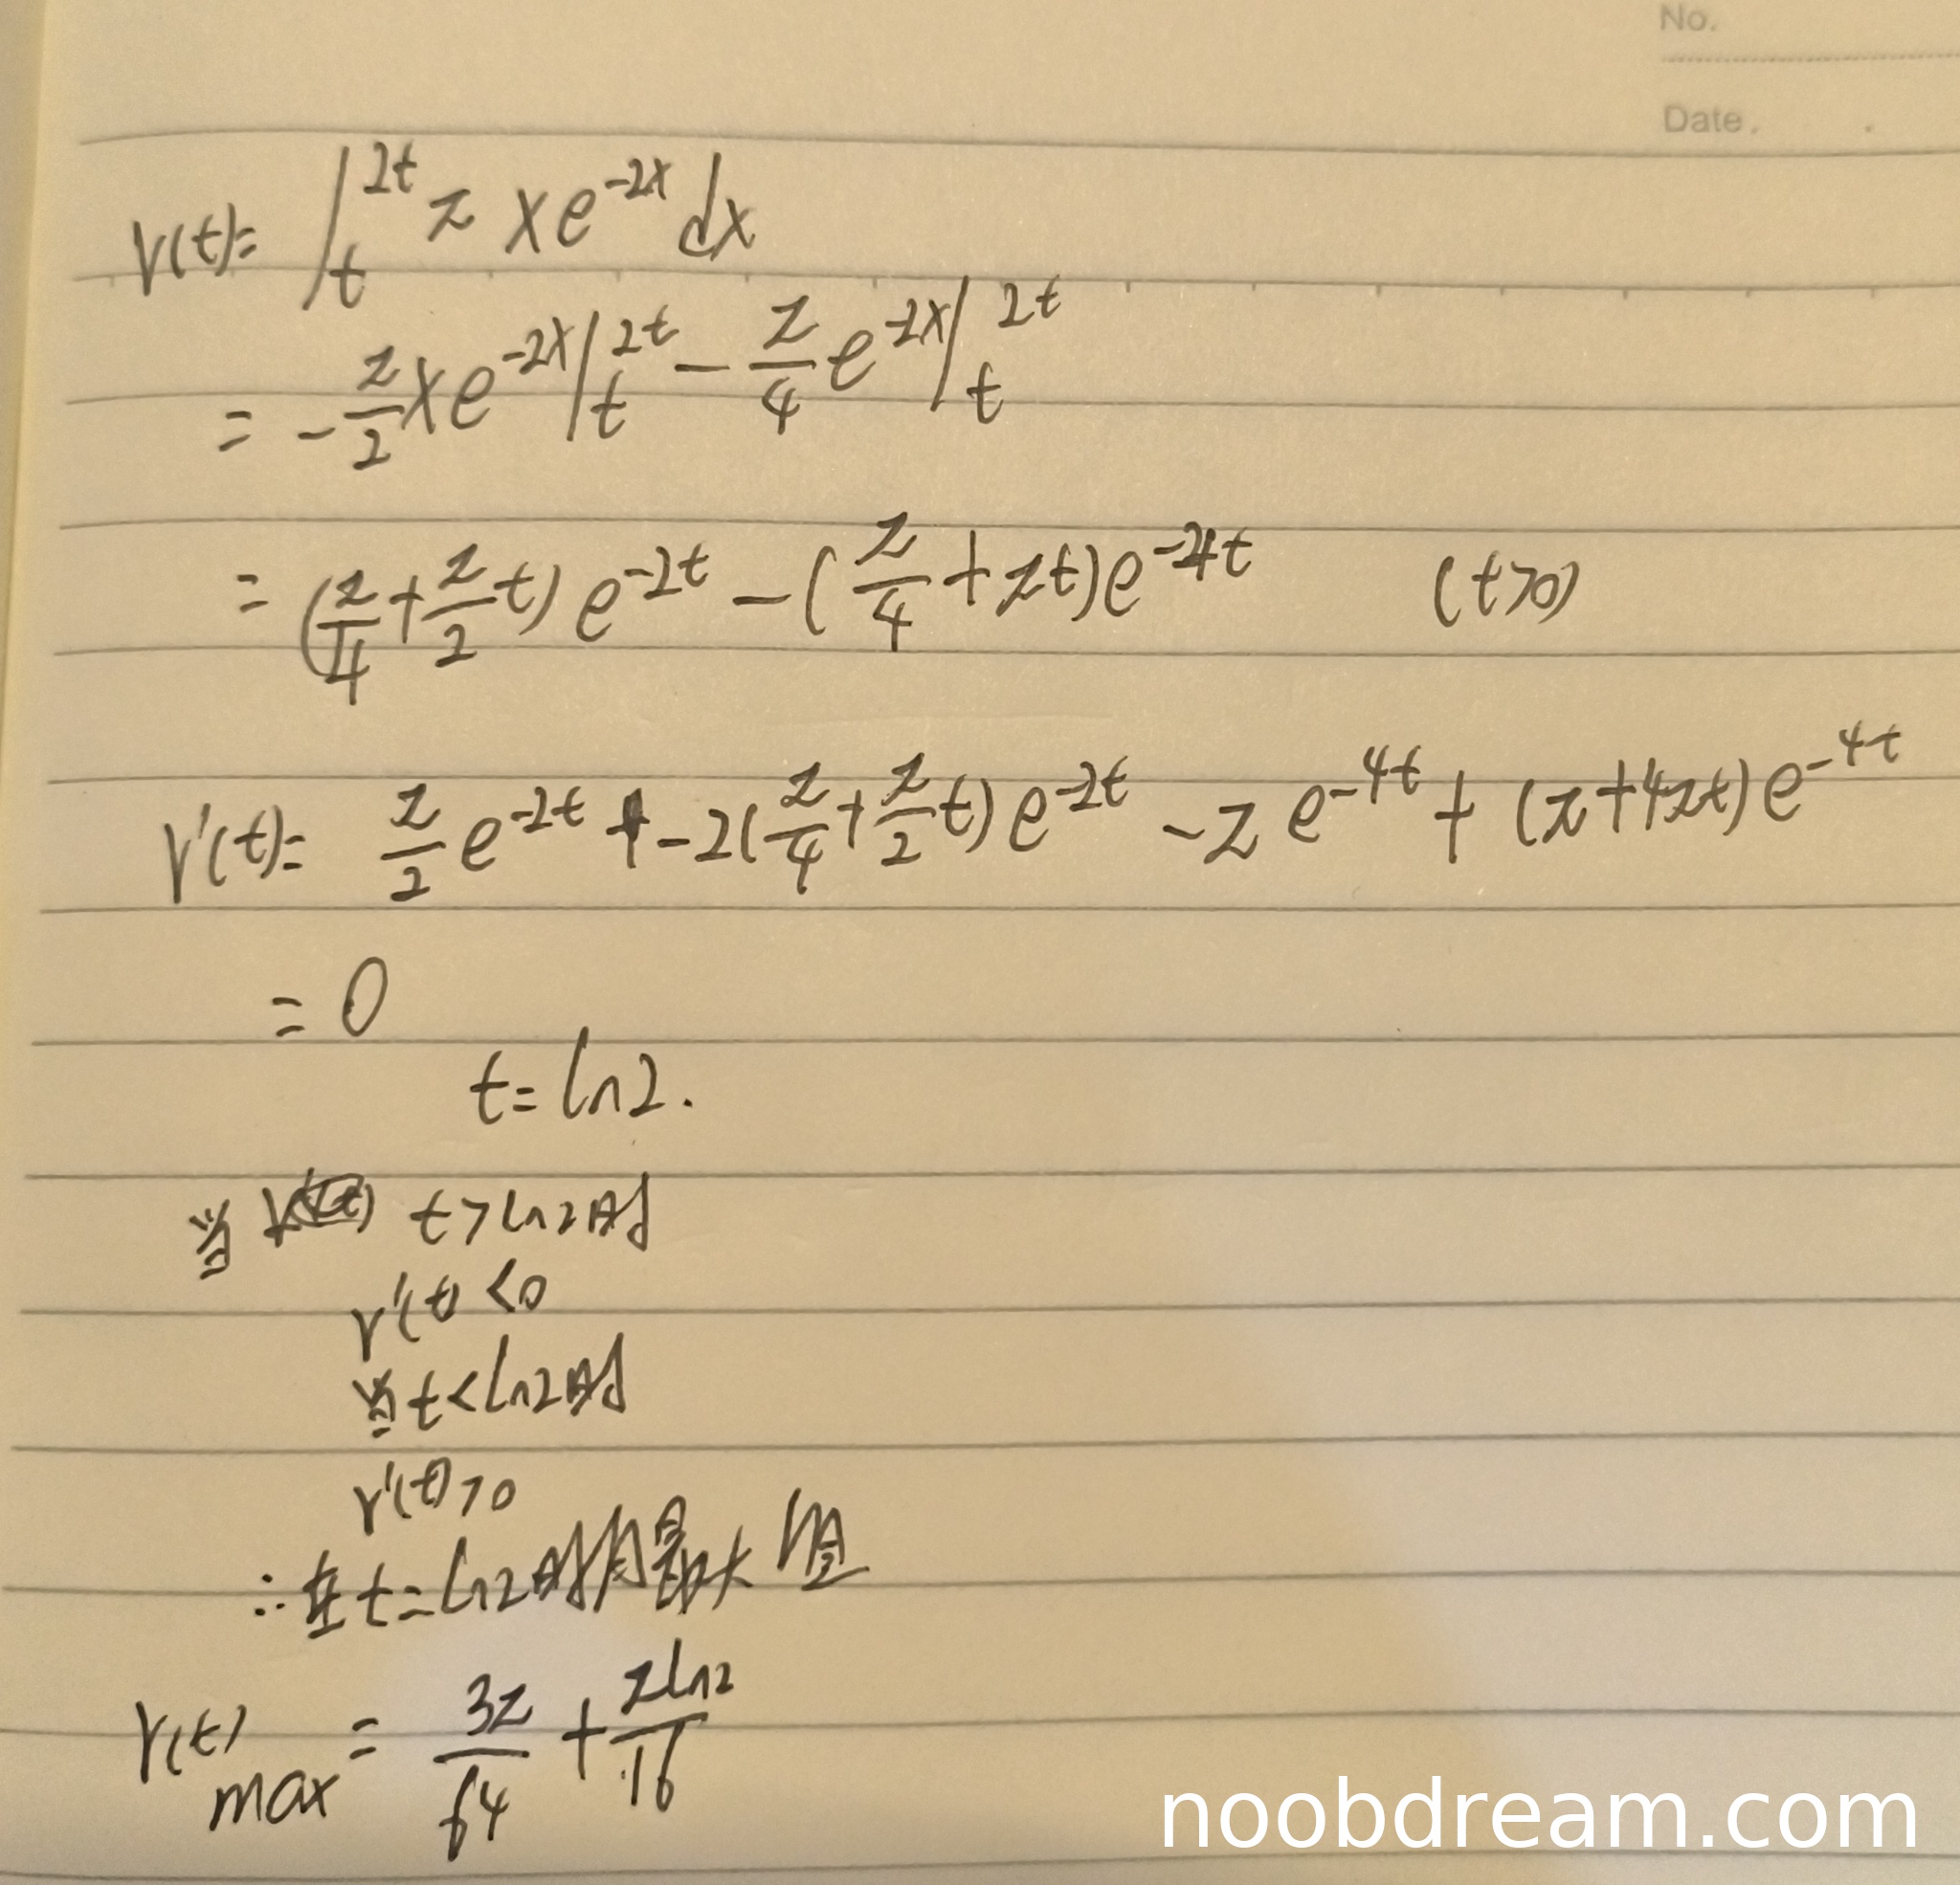 No.
Date.
V(t)= ∫_t^{2t} π x e^{-2x} dx
= -π/2 x e^{-2x} |_t^{2t} - π/4 e^{-2x} |_t^{2t}
= (π/4 + π/2 t) e^{-2t} - (π/4 + πt) e^{-4t} (t>0)
V'(t)= π/2 e^{-2t} + -2(π/4 + π/2 t) e^{-2t} - π e^{-4t} + (π+4πt) e^{-4t}
= 0
t = ln2.
当 t > ln2时
V'(t) <0
当 t < ln2时
V'(t) >0
∴ 在 t = ln2时有最大值
V(t)max = 3π/64 + πln2/16
noobdream.com